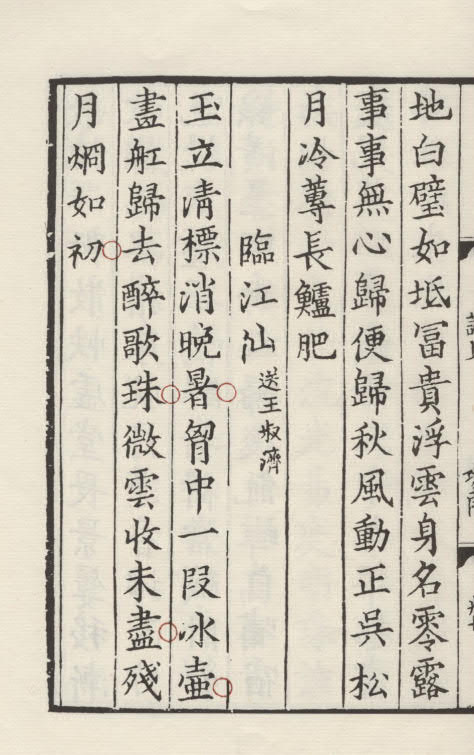 地白璧如坻冨貴浮雲身名零露
事事無心歸便歸秋風動正吳松
月冷蓴長鱸肥
臨江仙送王叔濟
玉立清標消晚暑胷中一段冰壷
畫舡歸去醉歌珠微雲收未盡殘
月烱如初